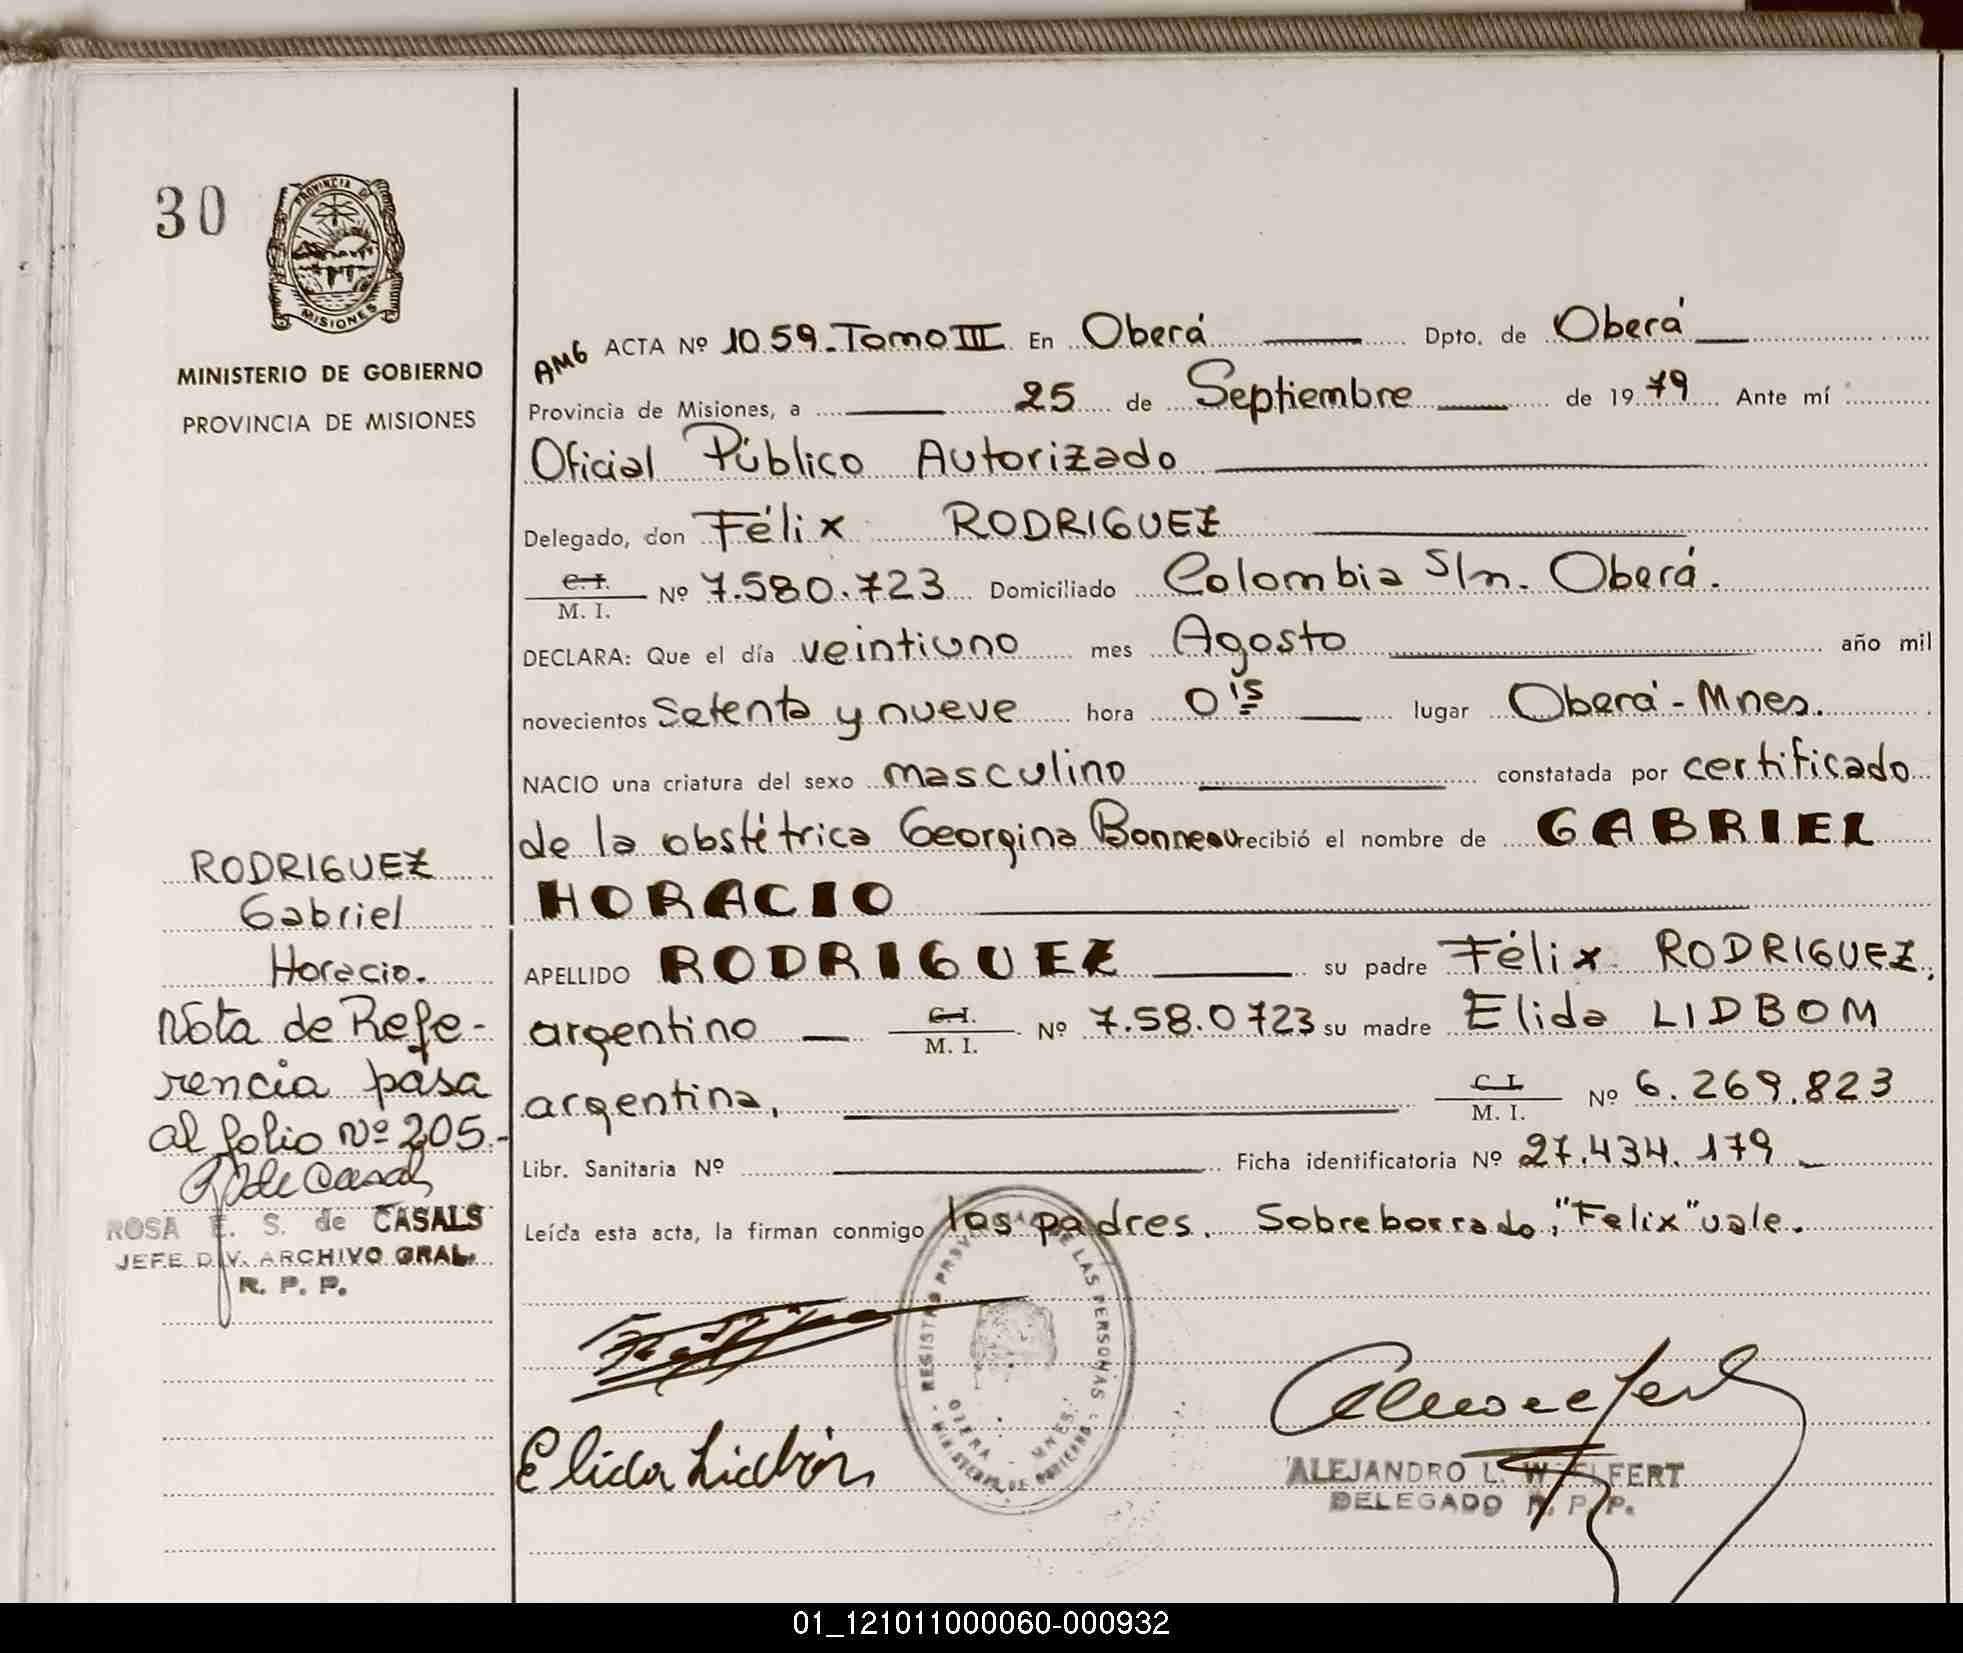 30
PROVINCIA DE
MISIONES
MINISTERIO DE GOBIERNO
PROVINCIA DE MISIONES
AMG ACTA Nº 1059. Tomo III En Oberá Dpto. de Oberá
Provincia de Misiones, a 25 de Septiembre de 1979 Ante mí
Oficial Público Autorizado
Delegado, don Félix RODRIGUEZ
C. I.
M. I. Nº 7.580.723 Domiciliado Colombia S/n. Oberá.
DECLARA: Que el día veintiuno mes Agosto año mil
novecientos setenta y nueve hora 0 15 lugar Oberá - Mnes.
NACIO una criatura del sexo masculino constatada por certificado
de la obstétrica Georgina Bonneau recibió el nombre de GABRIEL
HORACIO
APELLIDO RODRIGUEZ su padre Félix RODRIGUEZ,
argentino C. I. M. I. Nº 7.58.0723 su madre Elida LIDBOM
argentina, C. I. M. I. Nº 6.269.823
Libr. Sanitaria Nº Ficha identificatoria Nº 27.434.179
Leída esta acta, la firman conmigo los padres. Sobreborrado, "Felix" vale.
RODRIGUEZ
Gabriel
Horacio.
Nota de Refe-
rencia pasa
al folio Nº 205.-
R de Casals
ROSA E. S. de CASALS
JEFE DIV. ARCHIVO GRAL.
R. P. P.
REGISTRO PROV. DE LAS PERSONAS
OBERA - MNES.
MINISTERIO DE GOBIERNO
Elida Lidbom
ALEJANDRO L. WELFERT
DELEGADO R. P. P.
01_121011000060-000932